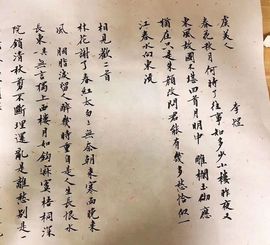 虞美人
李煜
春花秋月何時了往事知多少小樓昨夜又
東風故國不堪回首月明中 雕欄玉砌應
猶在只是朱顏改問君能有幾多愁恰似一
江春水向東流
相見歡二首
林花謝了春紅太匆匆無奈朝來寒雨晚來
風 胭脂淚留人醉幾時重自是人生長恨水
長東 無言獨上西樓月如鉤寂寞梧桐深
院鎖清秋剪不斷理還亂是離愁別是一